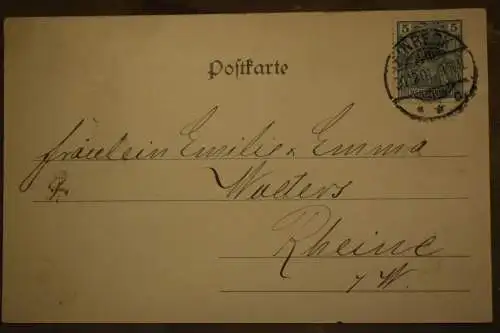 5 5
Postkarte
Fräulein Emilie u Emma
Wolters
Rheine
i/W.